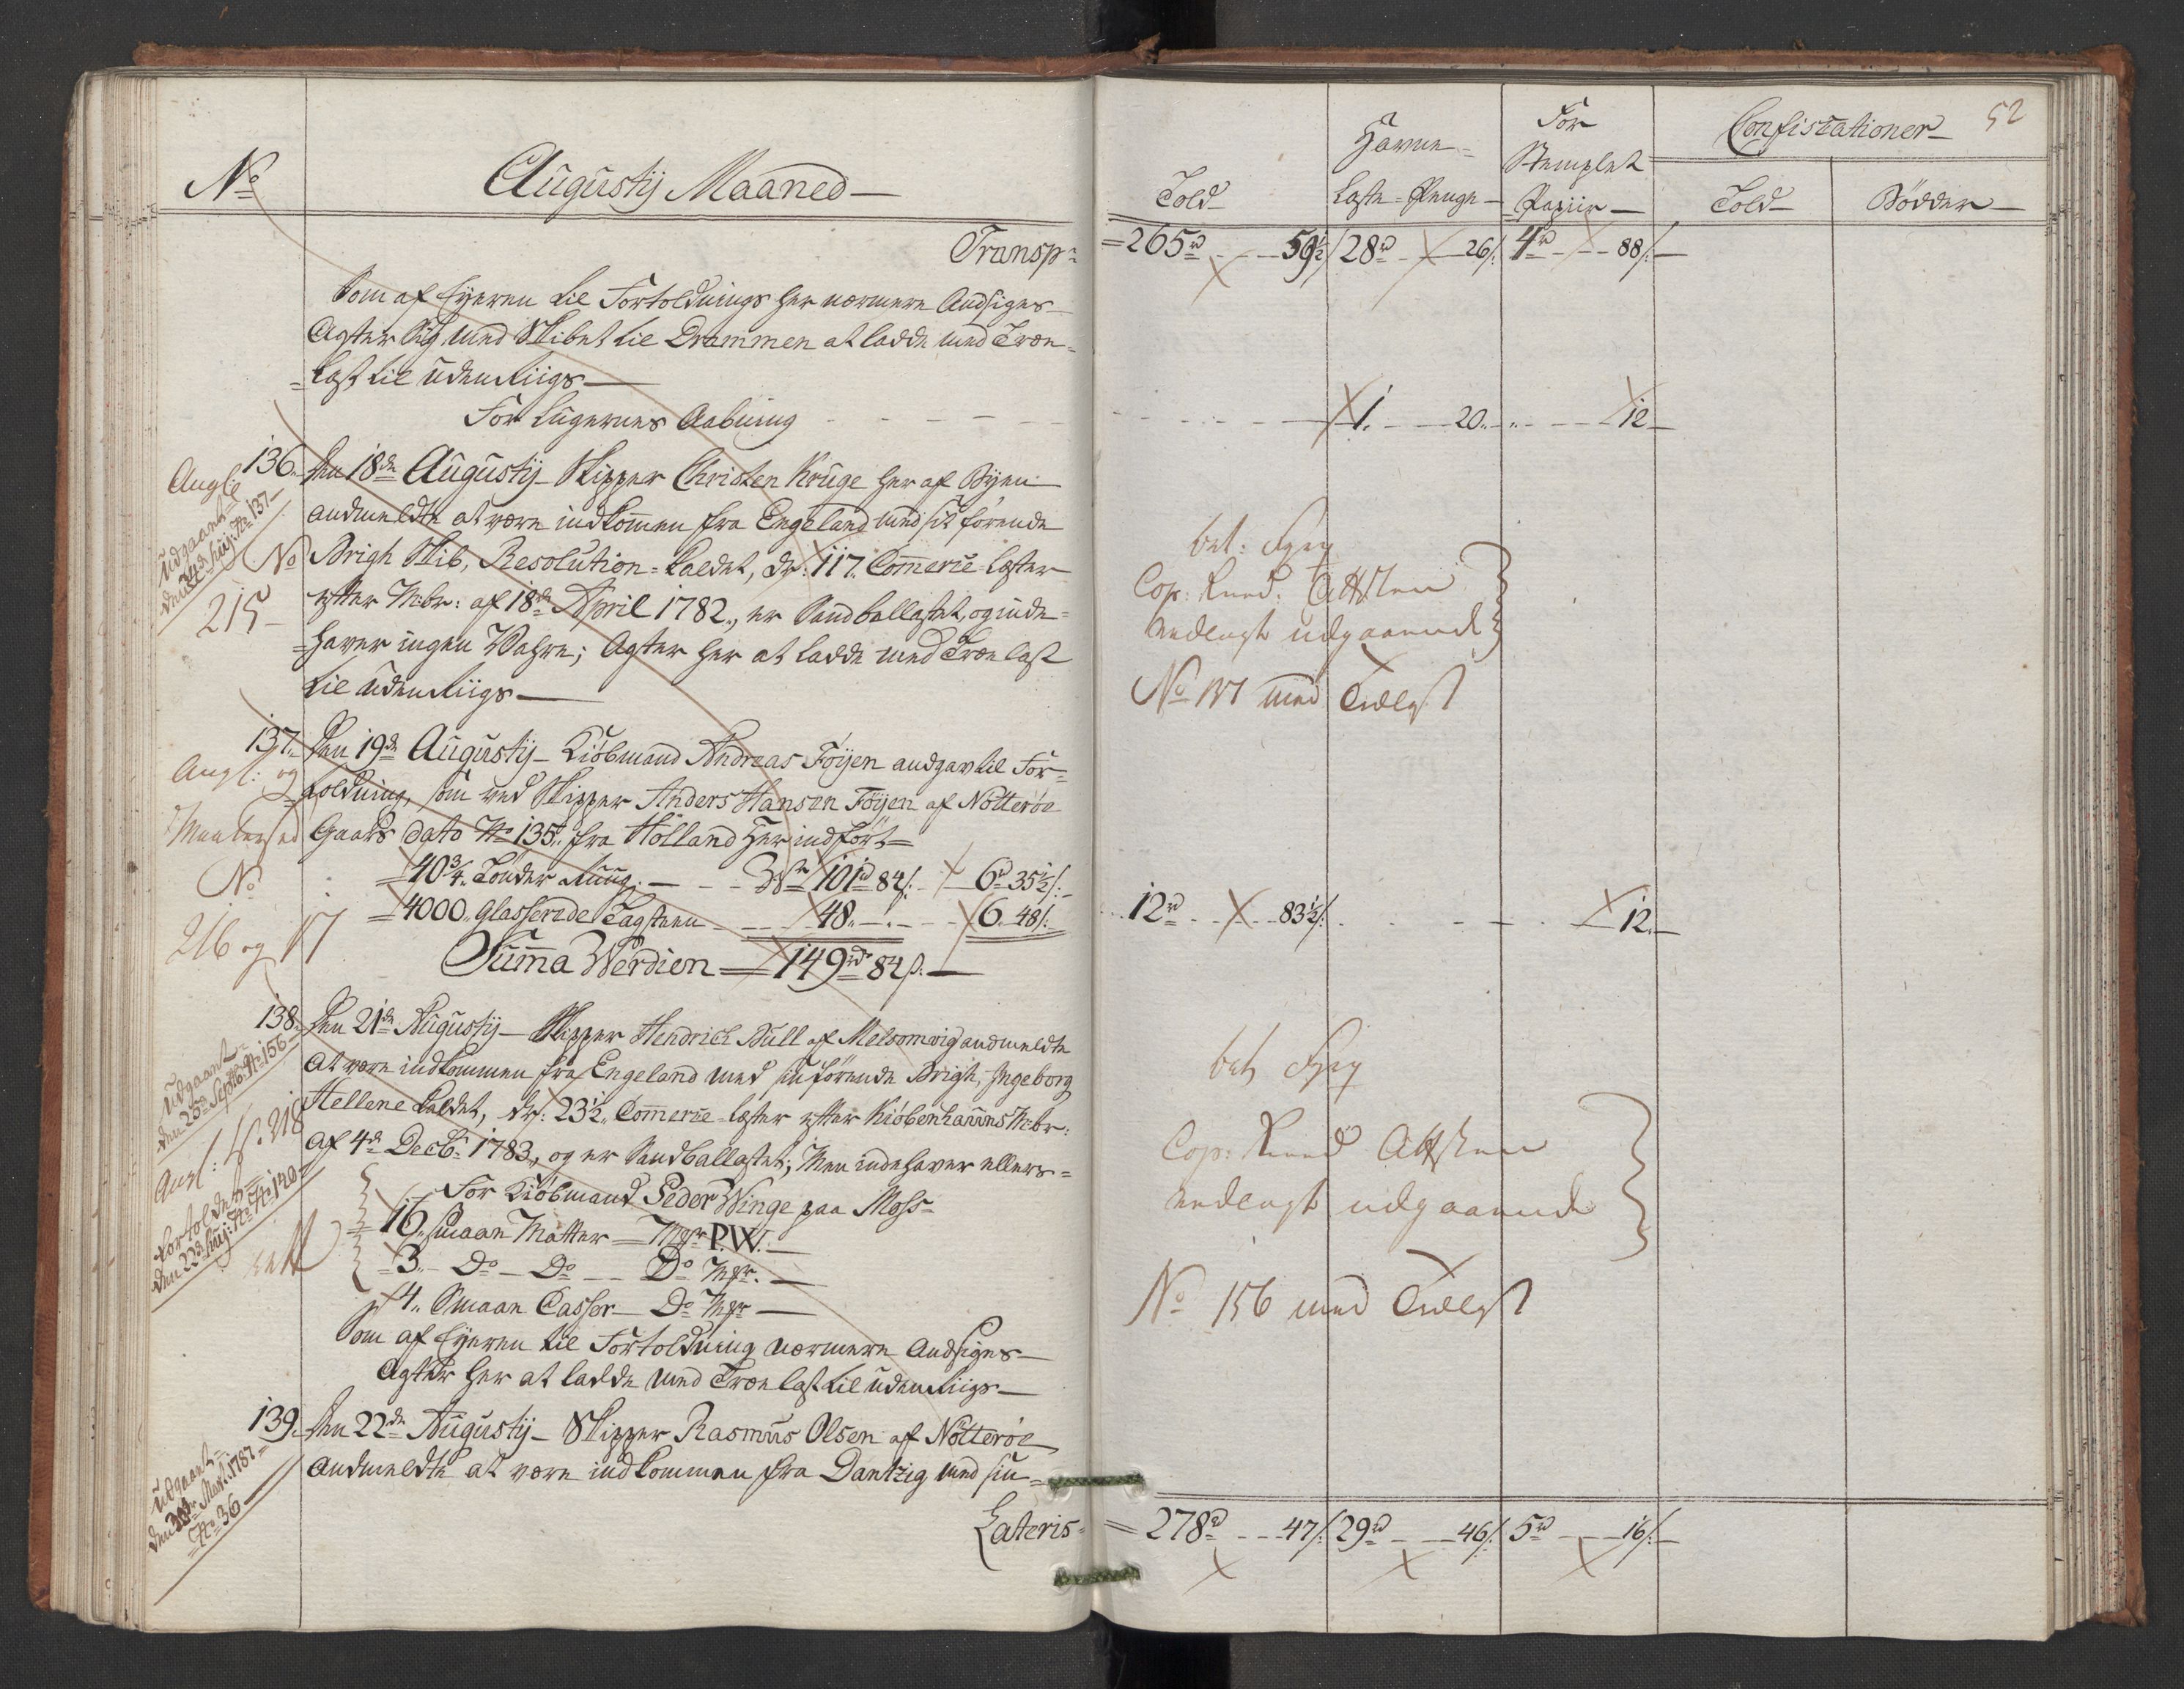 No
Augustij Maaned
Transp:
Som af Eyeren til Fortoldnings her nærmere Andsiges
Agter Sig med Skibet til Drammen at ladde med Træ-
last til udenriigs
For Lugernes Aabning
136. Den 18de Augustij Skipper Christen Kruge her af Byen
andmeldte at være indkommen fra Engeland med sit förende
Brigh Skib, Resolution kaldet, dr: 117 Commerce Læster
efter Mbr: af 18de April 1782, er Sandballastet, og inde-
haver ingen Wahre; Agter her at ladde med Træ last
til udenriigs
Angl:
Udgaaende
den 24de Aug: No 137
No
215
137. Den 19de Augustij Kiöbmand Andreas Föyen andgav til For-
toldning, som ved Skipper Anders Hansen Föyen af Nötteröe
Gaars dato No 135 fra Holland Her indfört
40 3/4 Tönder Rug 101 rd 84 s. 6 rd 35 1/2 s.
4000 Glasserede Tagsteen 48 6 48 s.
Summa Werdien 149 rd 84 s.
Angl: og
No
216 og 17
138. Den 21de Augustij Skipper Hendrich Bull af Melsomvig andmeldte
At være indkommen fra Engeland med sin förende Brigh, Ingeborg
Hellene kaldet, dr: 23 1/2 Commerce Læster efter Kiöbenhavns Mbr:
af 4de Decbr: 1783, og er Sandballastet; Men indehaver ellers
For Kiöbmand Peder Winge paa Moss
16 smaae Matter Mgr P.W.
3 Do Do Do Mgr.
4 Smaae Casser Do Mgr
Som af Eyeren til Fortoldning nærmere Andsiges
Agter her at ladde med Træ last til udenriigs
Udgaaende
den 25de Septbr: No 156
Angl: No 218
Fortoldet
den 22de Aug: No 140
139. Den 22de Augustij Skipper Rasmus Olsen af Nötteröe
Andmeldte at være indkommen fra Dantzig med sin
Udgaaet
Mart: 1787
No 36
Lateris
52
Told
Havne-
Læste-Penge
For
Stemplet
Papiir
Confiscationer
Told
Bödder
265 rd 59 1/2 28 rd 26 s. 4 rd 88 s.
1. 20. 12
bet:
Cop: Attsten
Andlagt udgaaende
No 137 med
12 rd 83 1/2 s. 12
bet
Cop: Attsten
Andlagt udgaaende
No 156 med
278 rd 47 s. 29 rd 46 s. 5 rd 16 s.